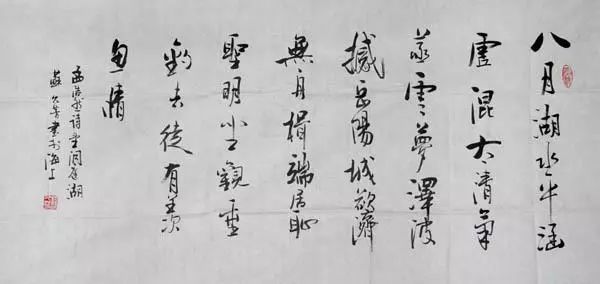 八月湖水平涵
虛混太清氣
蒸雲夢澤波
撼岳陽城欲濟
無舟楫端居耻
聖明坐觀垂
釣者徒有羨
魚情
孟浩然诗望洞庭湖
蘇書於海上